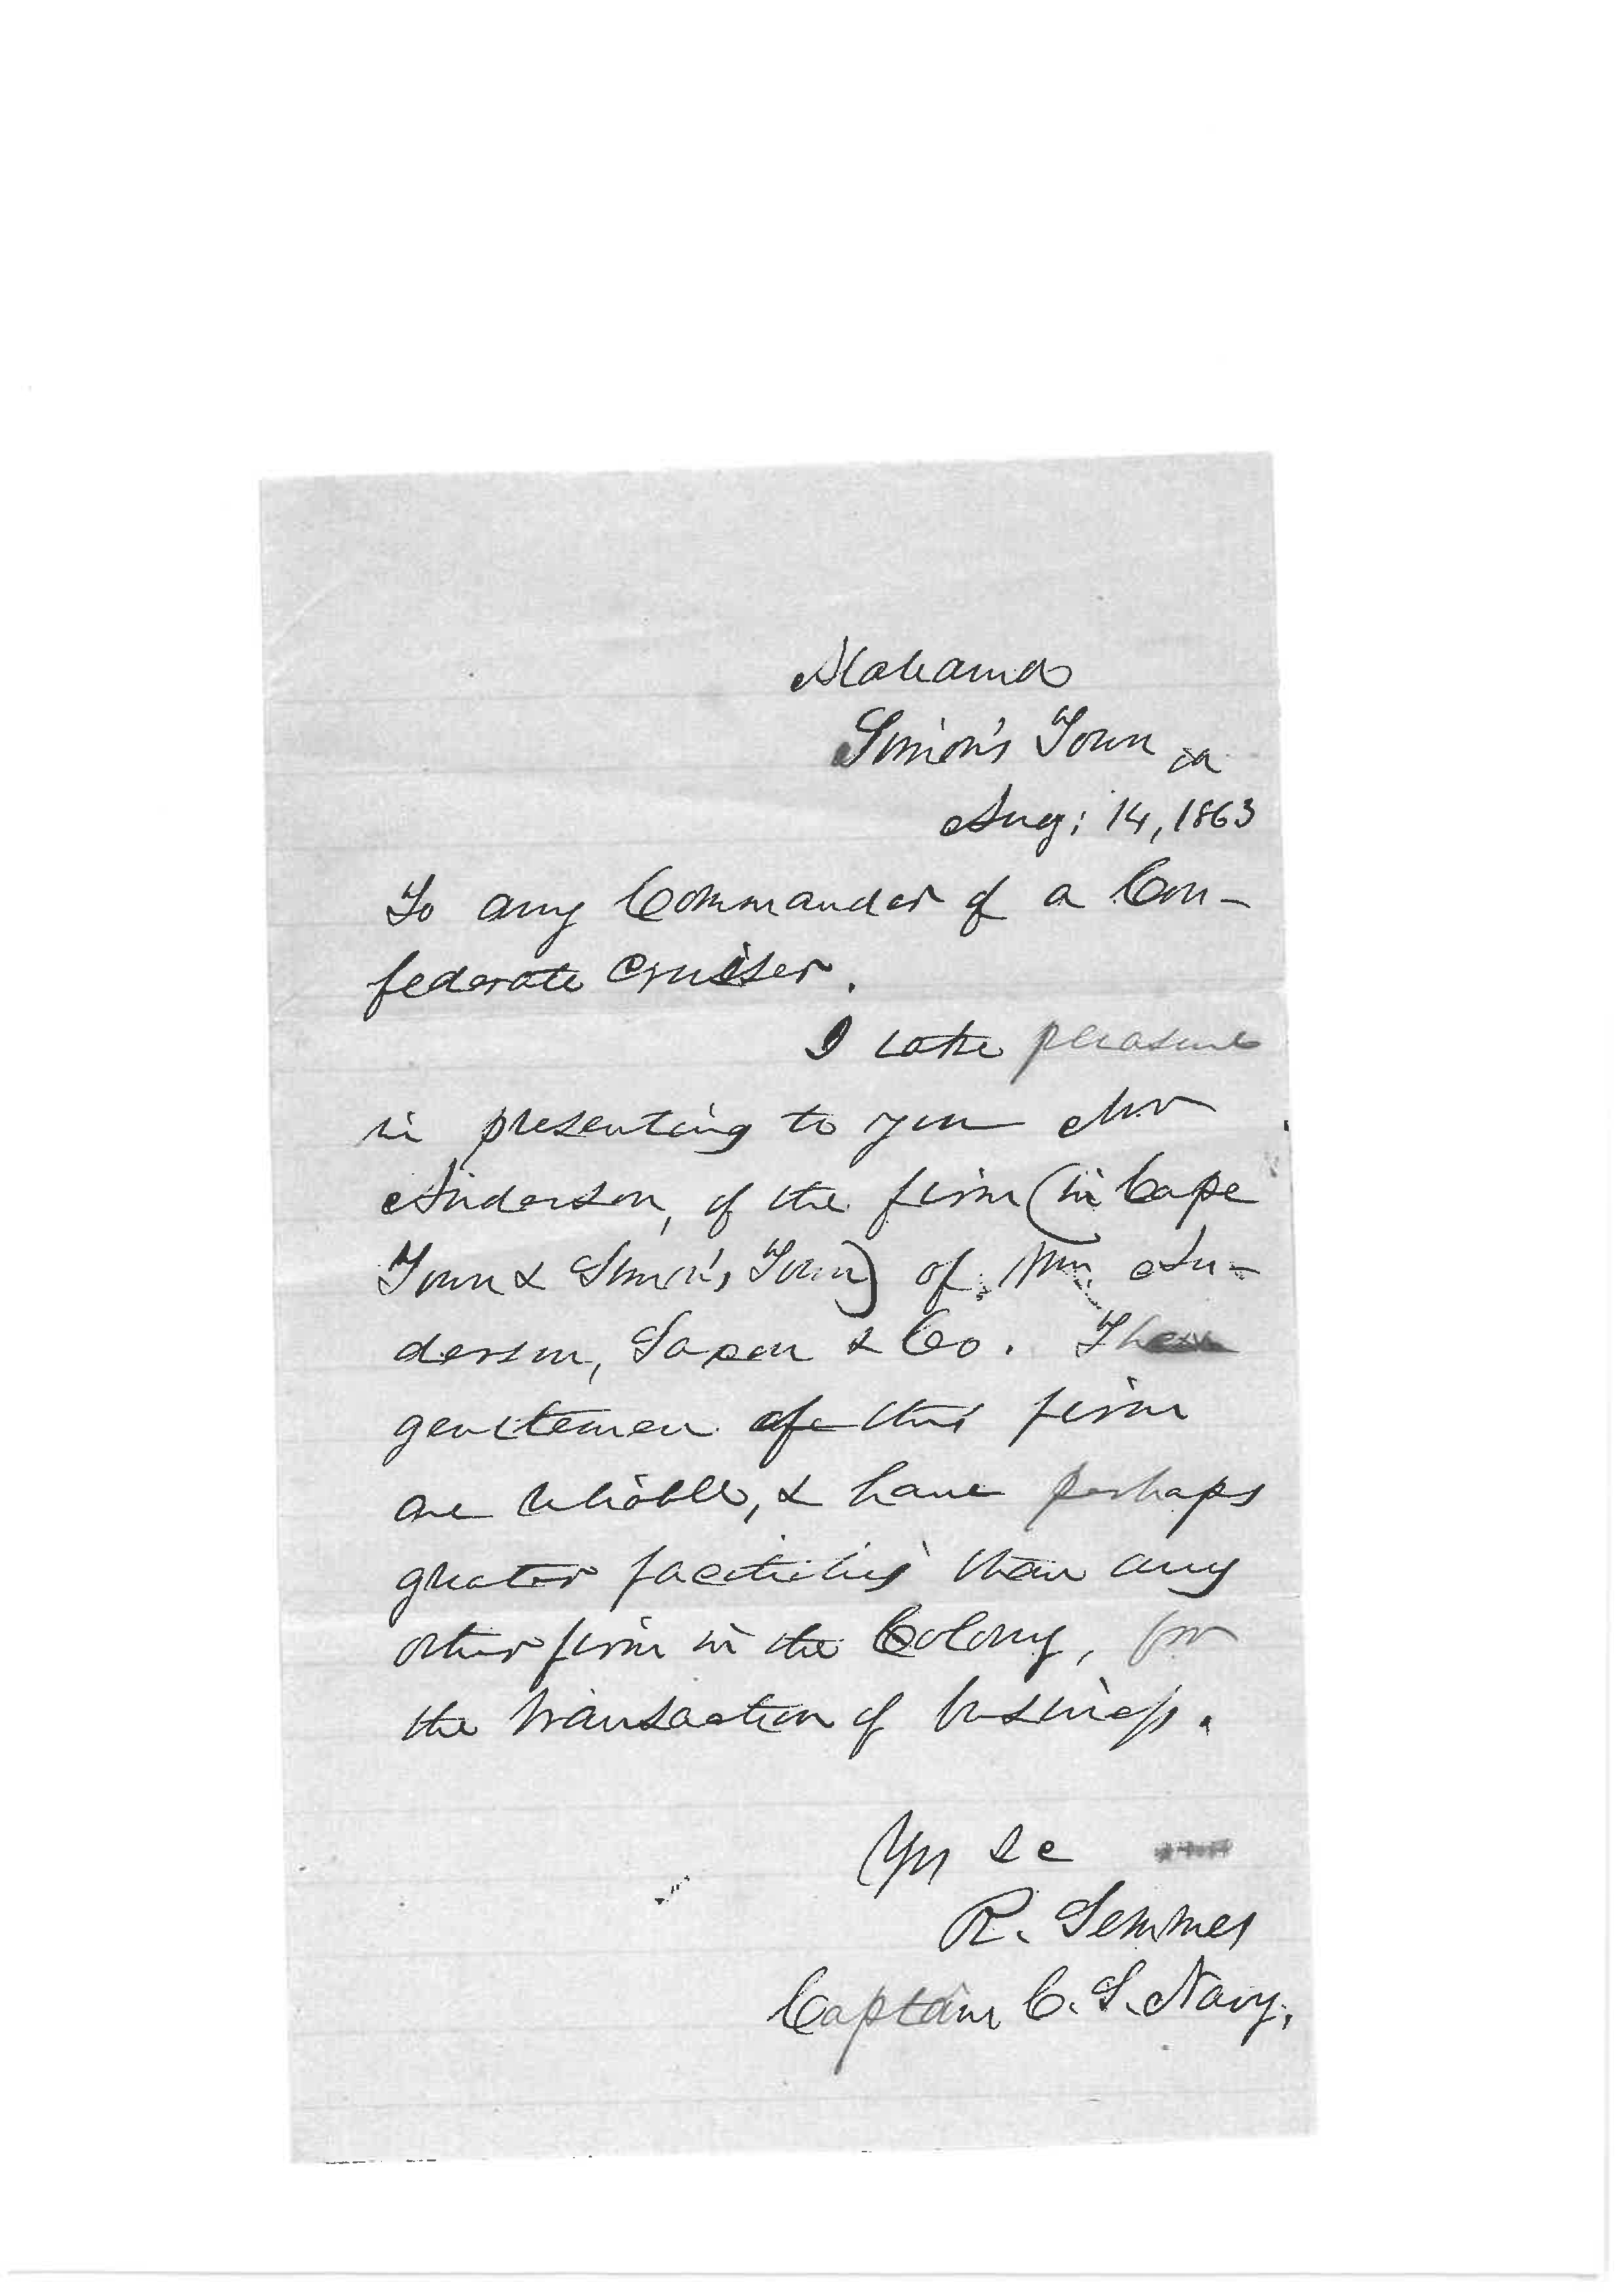 Alabama
Simon's Town
Aug: 14, 1863
To any Commander of a Con-
federate Cruiser.
I take pleasure
in presenting to you Mr
Anderson, of the firm (in Cape
Town & Simon's Town) of Wm. An-
derson, Saxon & Co. The
gentlemen of this firm
are reliable, & have perhaps
greater facilities than any
other firm in the Colony, for
the transaction of business.
Yrs &c
R. Semmes
Captain C. S. Navy.